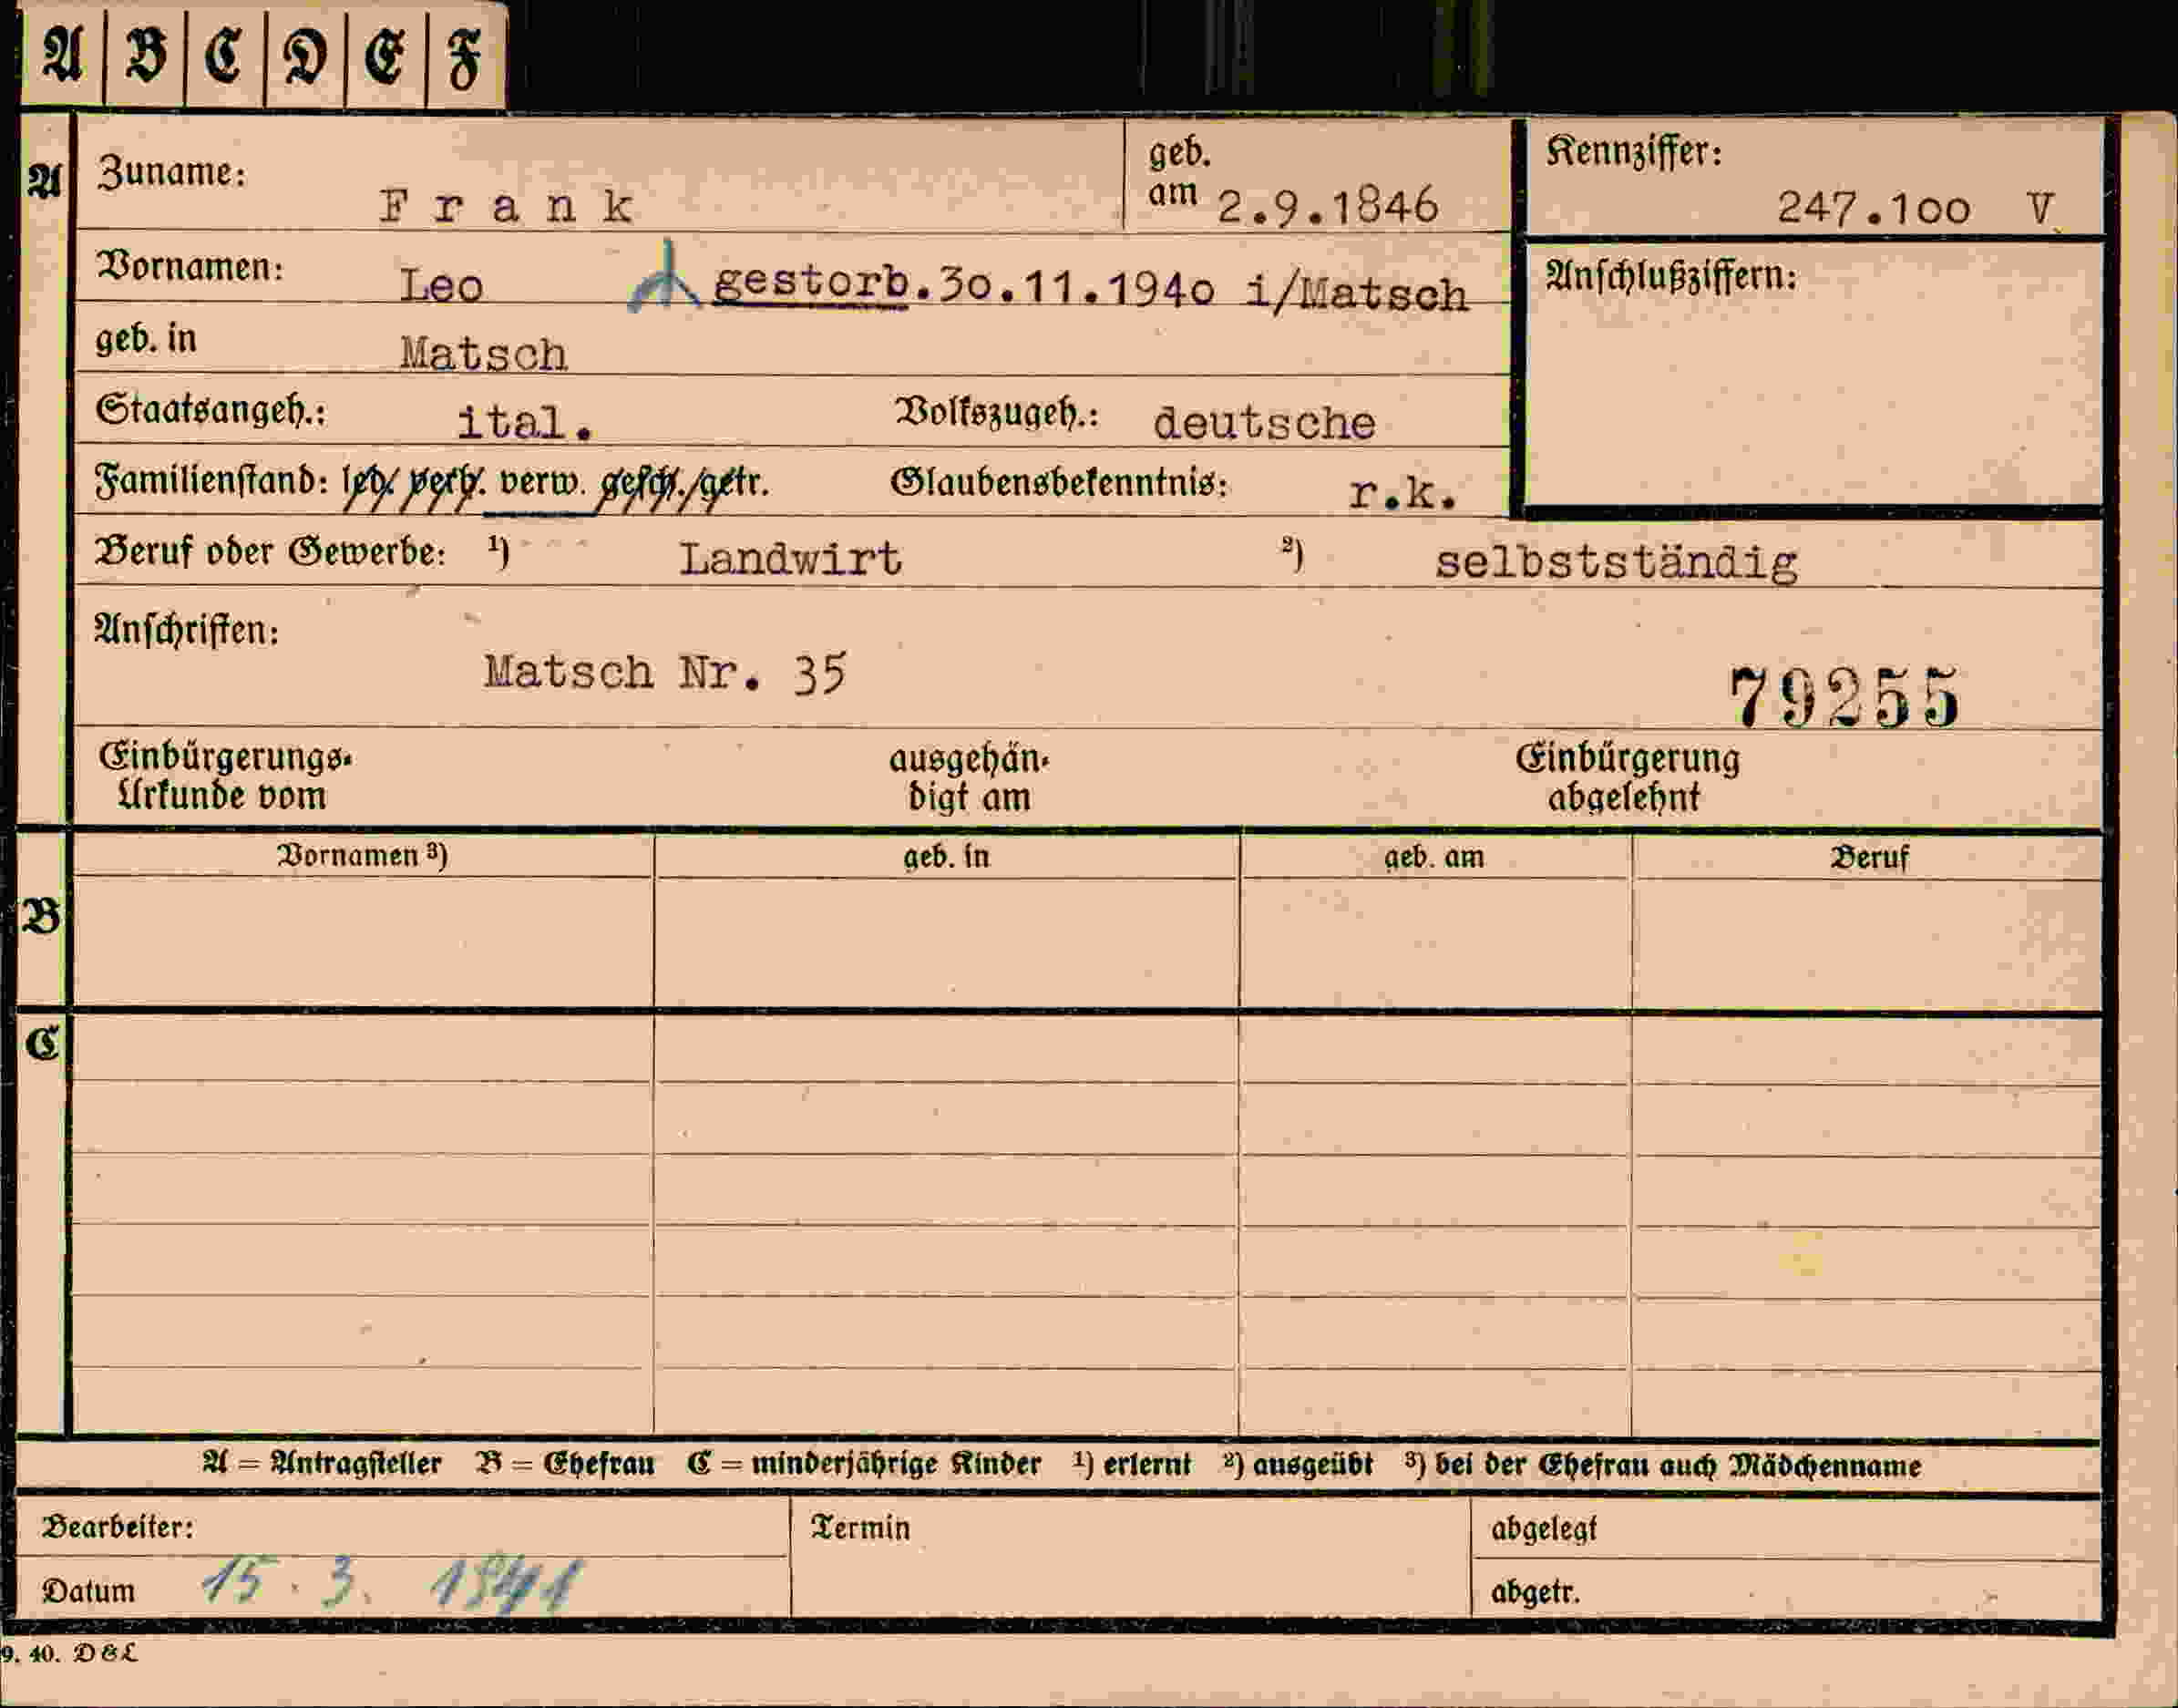 A B C D E F
A Zuname: Frank geb. am 2.9.1846 Kennziffer: 247.100 V
Vornamen: Leo gestorb.30.11.1940 i/Matsch Anschlußziffern:
geb. in Matsch
Staatsangeh.: ital. Volkszugeh.: deutsche
Familienstand: led. verh. verw. gesch./getr. Glaubensbekenntnis: r.k.
Beruf oder Gewerbe: ¹) Landwirt ²) selbstständig
Anschriften: Matsch Nr. 35
79255
Einbürgerungs- ausgehän- Einbürgerung
Urkunde vom digt am abgelehnt
Vornamen ³) geb. in geb. am Beruf
B
C
A = Antragsteller B = Ehefrau C = minderjährige Kinder ¹) erlernt ²) ausgeübt ³) bei der Ehefrau auch Mädchenname
Bearbeiter: Termin abgelegt
Datum 15. 3. 1941 abgetr.
9. 40. D&L